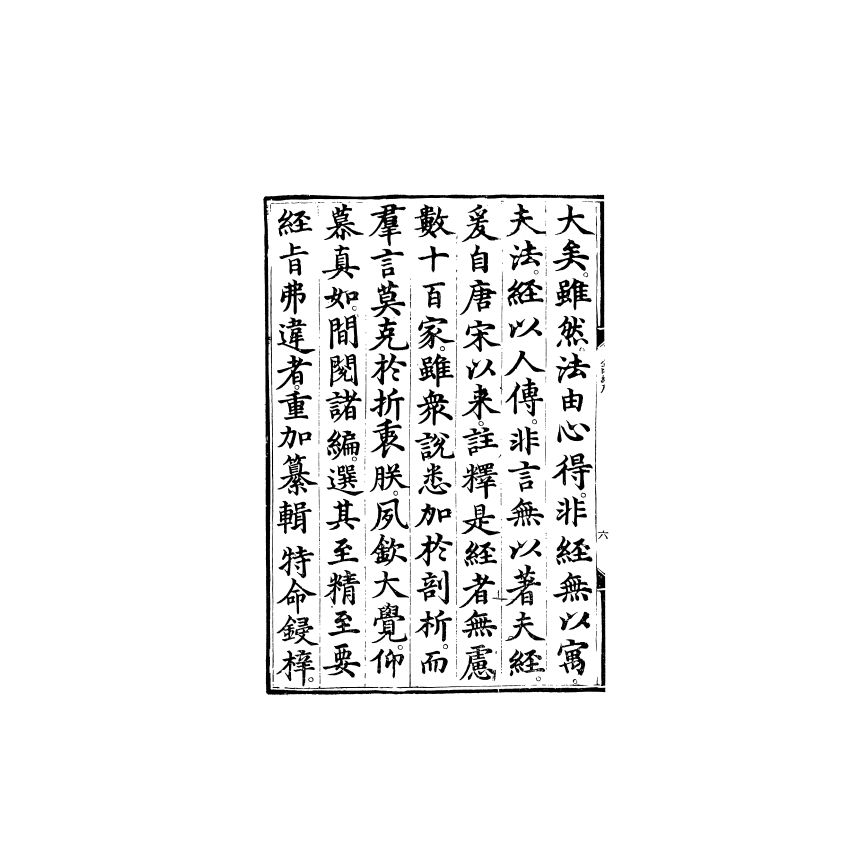 大矣。雖然。法由心得。非經無以寓。
夫法。經以人傳。非言無以著夫經。
爰自唐宋以來。註釋是經者無慮
數十百家。雖衆說悉加於剖析。而
羣言莫克於折衷。朕。夙欽大覺。仰
慕真如。間閱諸編。選其至精至要
經旨弗違者。重加纂輯特命鋟梓。
六